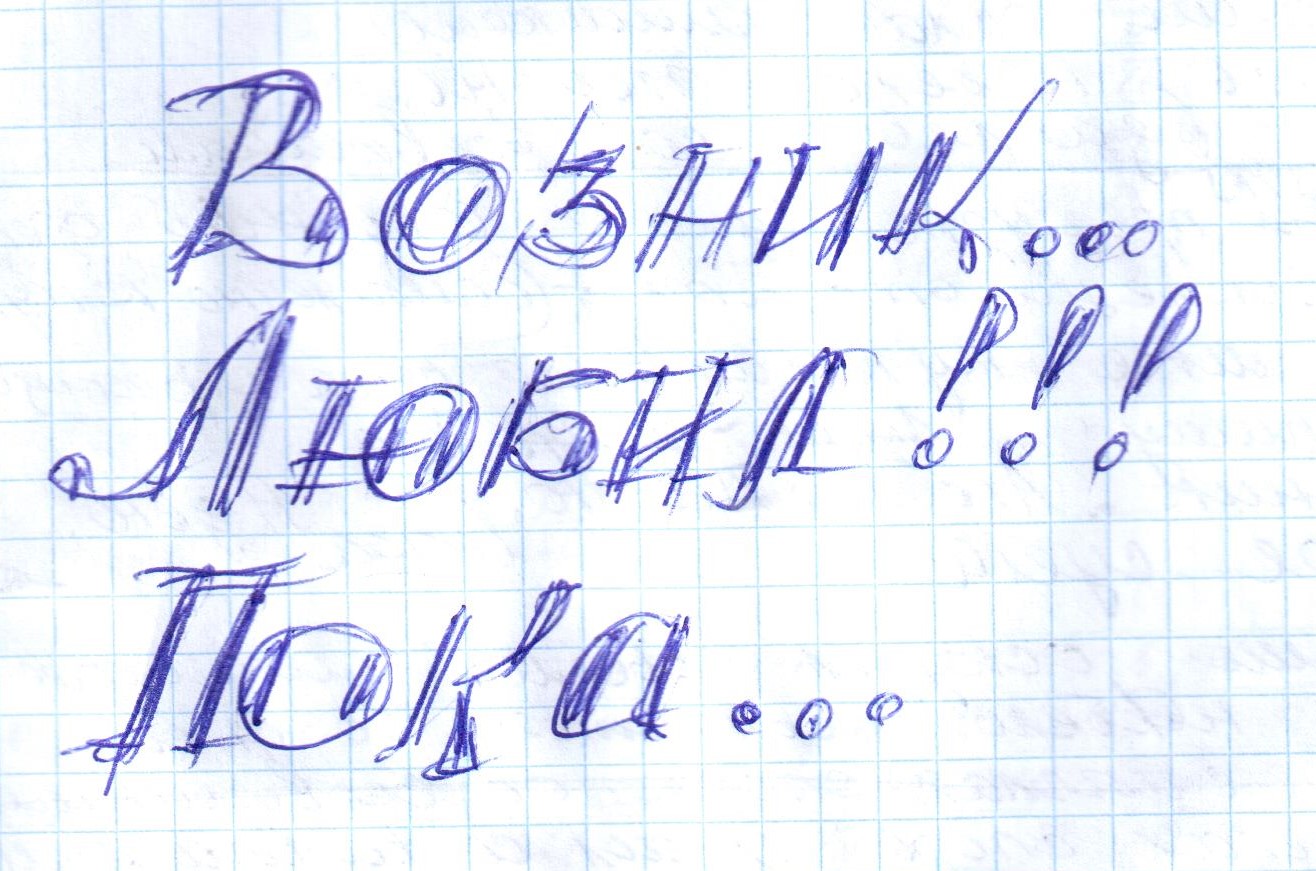 Возник...
Любил!!!
Пока...